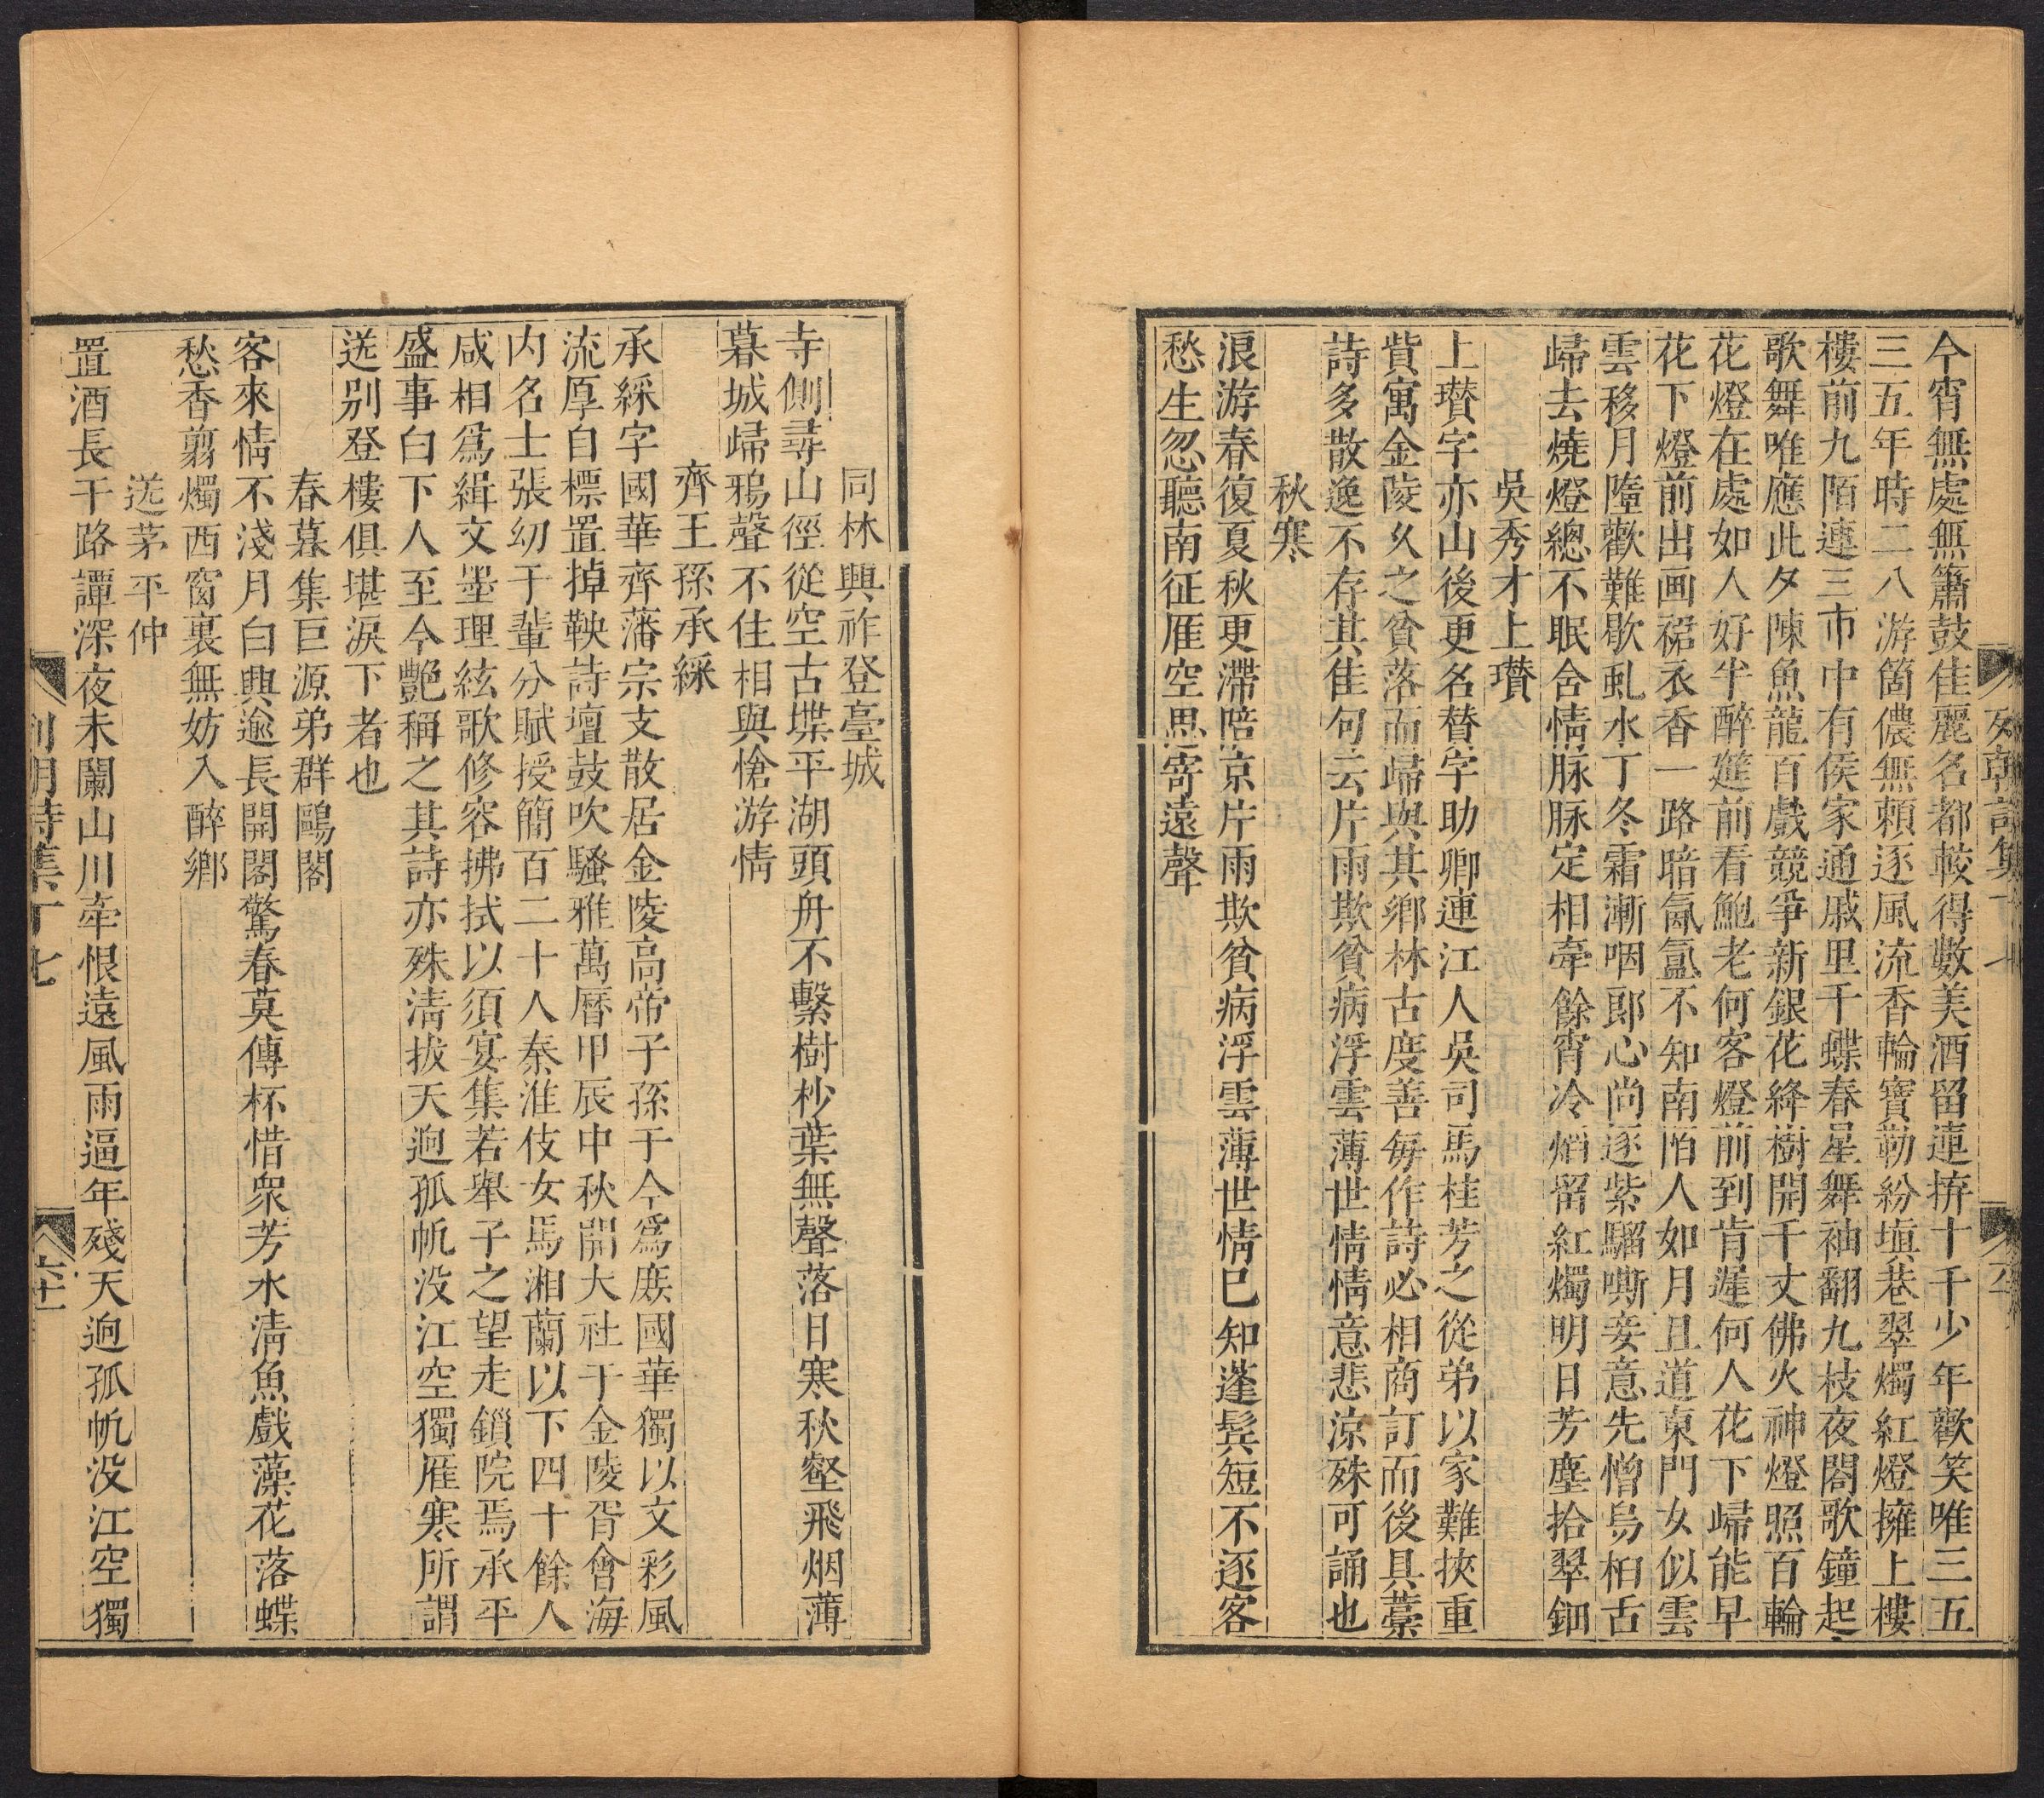 今宵無處無簫鼓佳麗名都較得數美酒留連拚十千少年歡笑唯三五
三五年時二八游箇儂無賴逐風流香輪寶勒紛塡巷翠燭紅燈擁上樓
樓前九陌連三市市中有侯家通戚里千蝶春星舞袖翻九枝夜閣歌鐘起
歌舞唯應此夕陳魚龍百戲競爭新銀花絳樹開千丈佛火神燈照百輪
花燈在處如人好半醉筵前看鮑老何客燈前到肯遲何人花下歸能早
花下燈前出画裙衣香一路暗氤氳不知南陌人如月且道東門女似雲
雲移月墮歡難歇虬水丁冬霜漸咽郞心尚逐紫騮嘶妾意先憎烏桕舌
歸去燒燈總不眠含情脉脉定相牽餘宵冷熖留紅燭明日芳塵拾翠鈿
吳秀才上瓚
上瓚字亦山後更名替字助卿連江人吳司馬桂芳之從弟以家難挾重
貲寓金陵久之貧落而歸與其鄕林古度善每作詩必相商訂而後具藁
詩多散逸不存其佳句云片雨欺貧病浮雲薄世情情意悲凉殊可誦也
秋寒
浪游春復夏秋更滯陪京片雨欺貧病浮雲薄世情巳知蓬髩短不逐客
愁生忽聽南征雁空思寄遠聲
列朝詩集丁七
同林興祚登臺城
寺側尋山徑從空古堞平湖頭舟不繫樹杪葉無聲落日寒秋壑飛烟薄
暮城歸鴉聲不住相與愴游情
齊王孫承綵
承綵字國華齊藩宗支散居金陵高帝子孫于今爲庶國華獨以文彩風
流厚自標置掉鞅詩壇鼓吹騷雅萬曆甲辰中秋開大社于金陵胥會海
内名士張幼于輩分賦授簡百二十人秦淮伎女馬湘蘭以下四十餘人
咸相爲緝文墨理絃歌修容拂拭以須宴集若舉子之望走鎖院焉承平
盛事白下人至今艷稱之其詩亦殊淸拔天逈孤帆没江空獨雁寒所謂
送别登樓俱堪淚下者也
春暮集巨源弟群鷗閣
客來情不淺月白興逾長開閣驚春莫傳杯惜衆芳水淸魚戲藻花落蝶
愁香剪燭西窗裏無妨入醉鄕
送茅平仲
置酒長干路譚深夜未闌山川牽恨遠風雨逼年殘天逈孤帆没江空獨
列朝詩集丁七